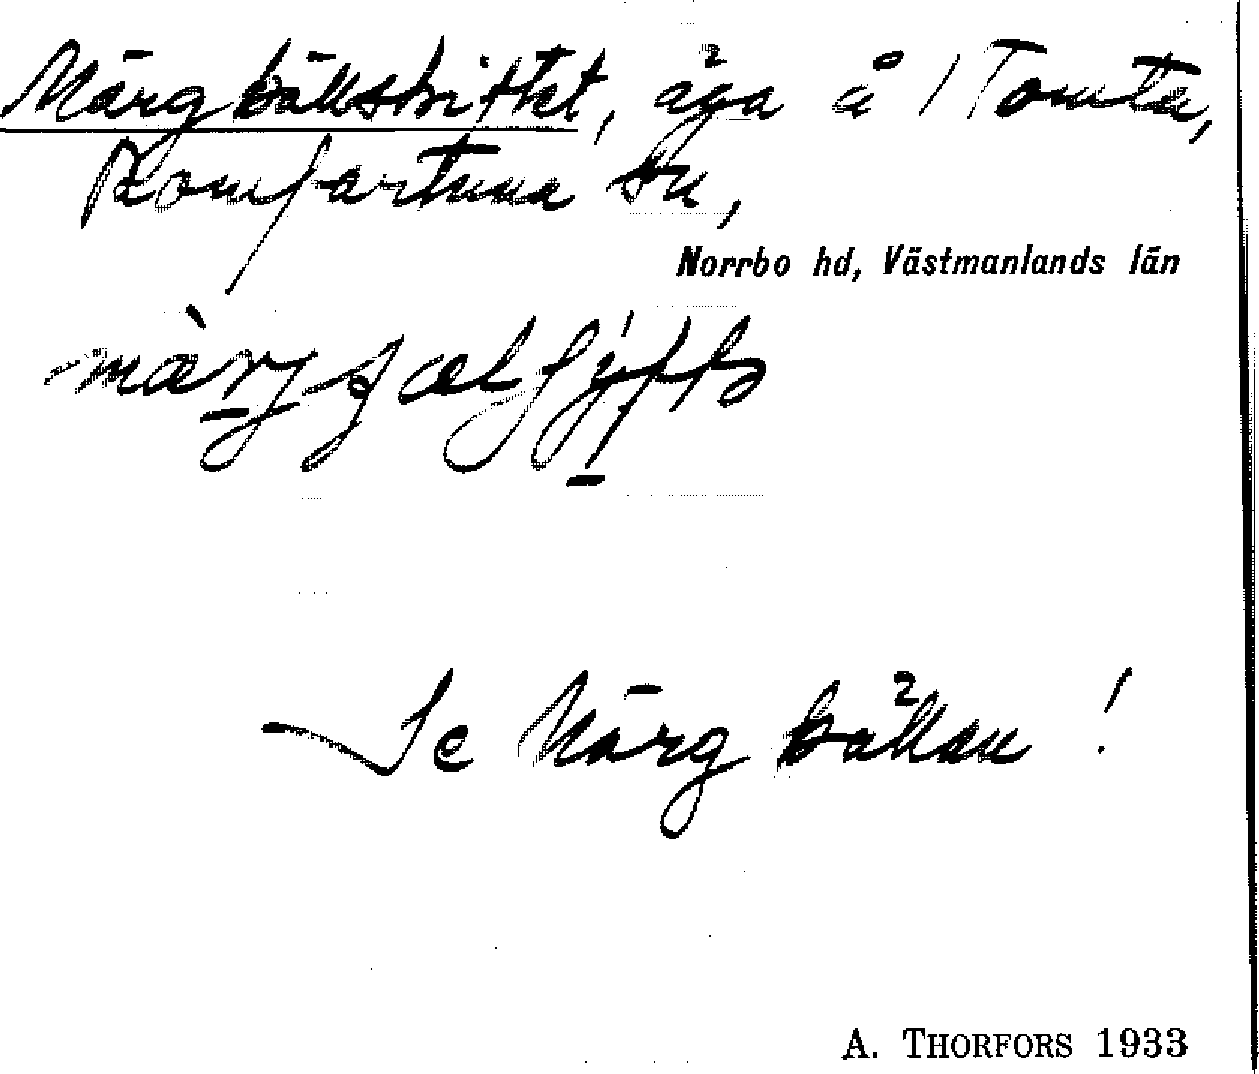 Märgbäksskiftet, äga å 1 Tomta,
Romfartuna sn,
Norrbo hd, Västmanlands län
Se Märgbäcken!
A. THORFORS 1933